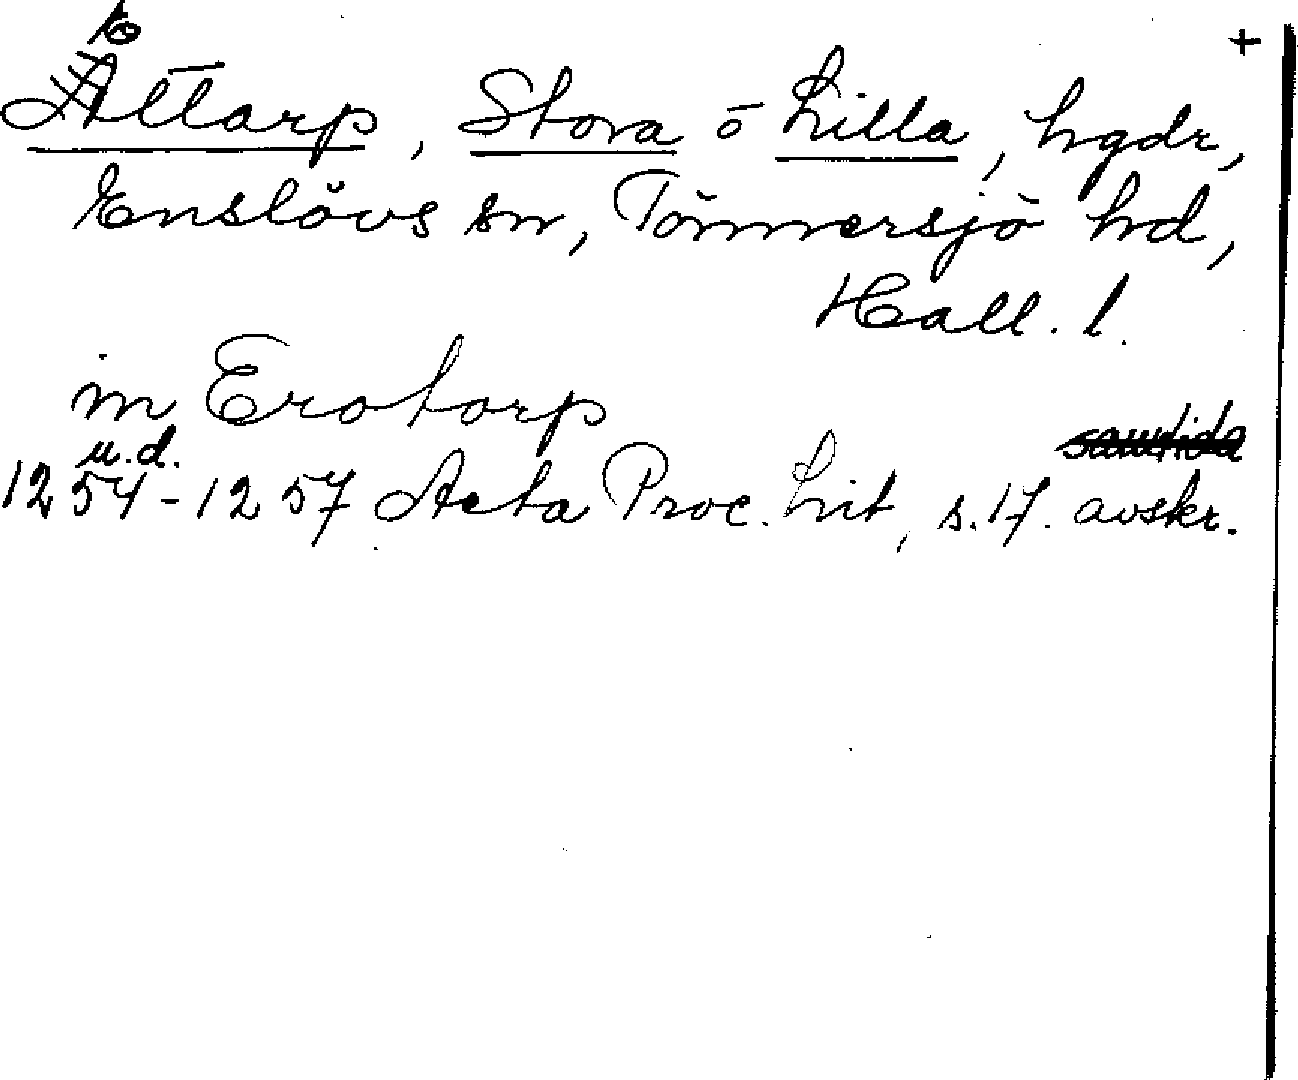 E +
Åttarp, Stora o Lilla, hgdr,
Enslövs sn, Tönnersjö hd,
Hall. l.
in Erotorp
u.d. samtida
1254-1257 Acta Proc. Lit, s. 17. avskr.